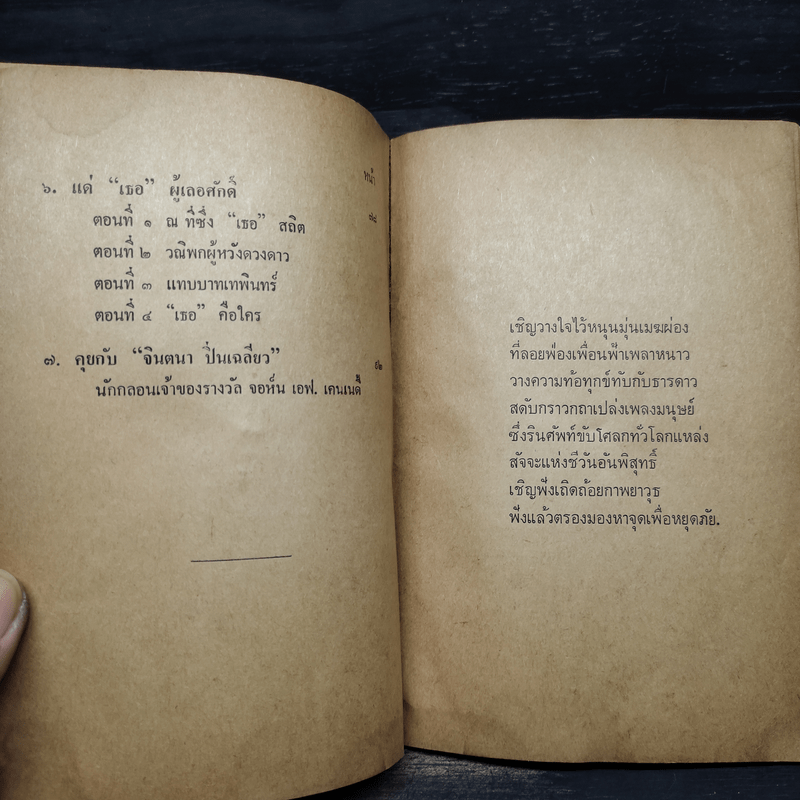 หน้า
๖. แด่ “เธอ” ผู้เลอศักดิ์
ตอนที่ ๑ ณ ที่ซึ่ง “เธอ” สถิต
ตอนที่ ๒ วณิพกผู้หวังดวงดาว
ตอนที่ ๓ แทบบาทเทพินทร์
ตอนที่ ๔ “เธอ” คือใคร
๗. คุยกับ “จินตนา ปิ่นเฉลียว”
นักกลอนเจ้าของรางวัล จอห์น เอฟ. เคนเนดี้
เชิญวางใจไว้หนุนมุ่นเมฆผ่อง
ที่ลอยฟ่องเพื่อนฟ้าเพลาหนาว
วางความท้อทุกข์ทับกับธารดาว
สดับกราวกถาเปล่งเพลงมนุษย์
ซึ่งรินศัพท์ขับโศลกทั่วโลกแหล่ง
สัจจะแห่งชีวันอันพิสุทธิ์
เชิญฟังเถิดถ้อยกาพยาวุธ
ฟังแล้วตรองมองหาจุดเพื่อหยุดภัย.